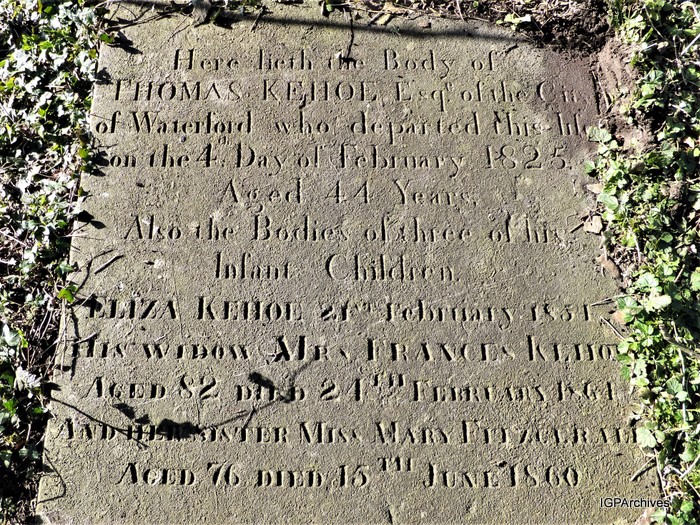 Here lieth the Body of
THOMAS KEHOE Esqr. of the City
of Waterford who departed this life
on the 4th Day of February 1825.
Aged 44 Years.
Also the Bodies of three of his
Infant Children.
ELIZA KEHOE 21st February
HIS WIDOW MRS. FRANCES KEHOE
AGED 82 DIED 24TH FEBRUARY 1864
AND HER SISTER MISS MARY FITZGERALD
AGED 76 DIED 15TH JUNE 1860
IGPArchives